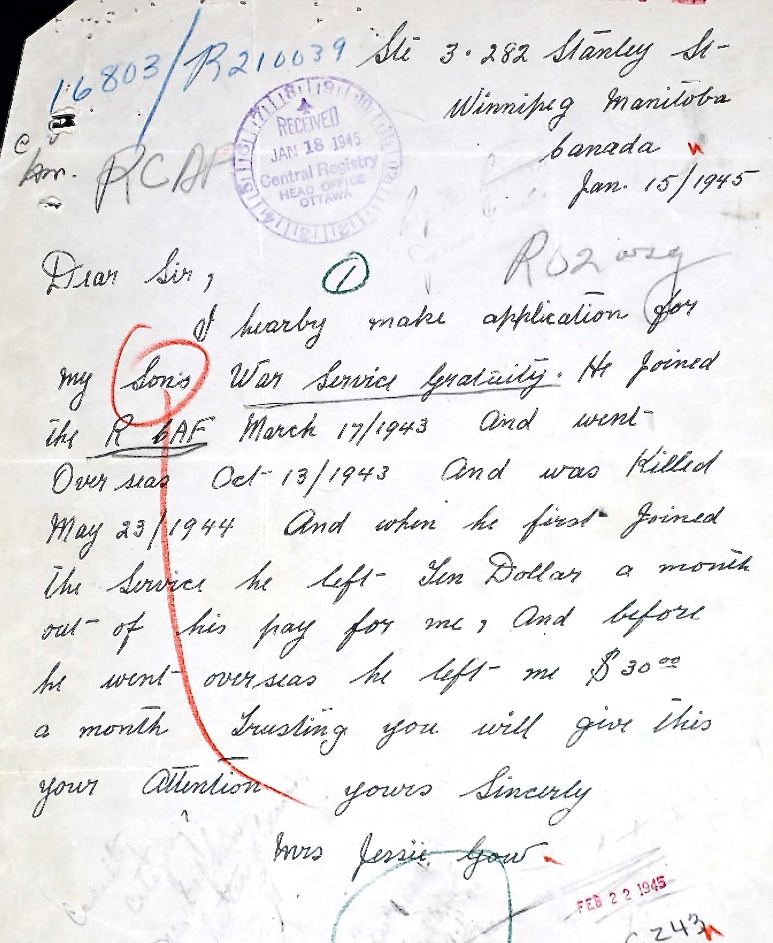 16803/R210039
Ste 3. 282 Stanley St
Winnipeg Manitoba
Canada
Jan. 15/1945
RECEIVED
JAN 18 1945
Central Registry
HEAD OFFICE
OTTAWA
RCAF
Dear Sir,
1
I hearby make application for
my Sons War Service Gratuity. He Joined
the R CAF March 17/1943 And went
Overseas Oct 13/1943 And was Killed
May 23/1944 And when he first Joined
the Service he left Ten Dollar a month
out of his pay for me, And before
he went overseas he left me $30.00
a month Trusting you will give this
your Attention yours Sincerly
Mrs Jessie Gow.
FEB 22 1945